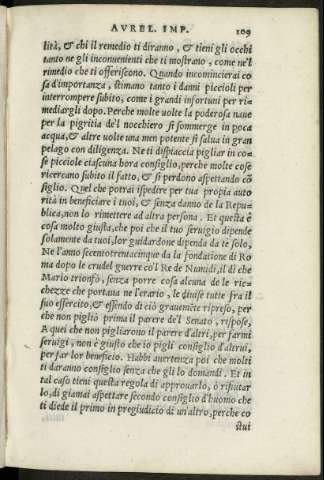 AVREL. IMP. 109
lità, & chi il remedio ti diranno, & tieni gli occhi
tanto ne gli inconuenienti che ti mostrano, come nè'l
rimedio che ti offeriscono. Quando incomincierai co
sa d'importanza, stimano tanto i danni piccioli per
interrompere subito, come i grandi infortuni per ri-
mediargli dopo. Perche molte uolte la poderosa naue
per la pigritia de'l nocchiero si sommerge in poca
acqua, & altre uolte una men potente si salua in gran
pelago con diligenza. Ne ti dispiaccia pigliar in co-
se picciole ciascuna hora consiglio, perche molte cose
ricercano subito il fatto, & si perdono aspettando cō
siglio. Quel che potrai ispedire per tua propia auto
rità in beneficiare i tuoi, & senza danno de la Repu-
blica, non lo rimettere ad altra persona. Et questa è
cosa molto giusta, che poi che il tuo seruigio dipende
solamente da tuoi, lor guidardone dipenda da te solo,
Ne l'anno secentotrentacinque da la fondatione di Ro
ma dopo le crudel guerre cò'l Re de Numidi, il dì che
Mario trionfò, senza porre cosa alcuna de le ric-
chezze che portaua ne l'erario, le diuise tutte fra il
suo essercito, & essendo di ciò grauemēte ripreso, per
che non pigliò prima il parere de'l Senato, rispose,
A quei che non pigliarono il parere d'altri, per farmi
seruigi, non è giusto che io pigli consiglio d'altrui,
per far lor beneficio. Habbi auertenza poi che molti
ti daranno consiglio senza che gli lo domandi. Et in
tal caso tieni questa regola di approuarlo, ò rifiutar
lo, di giamai aspettare secondo consiglio d'huomo che
ti diede il primo in pregiudicio di un'altro, perche co
stui